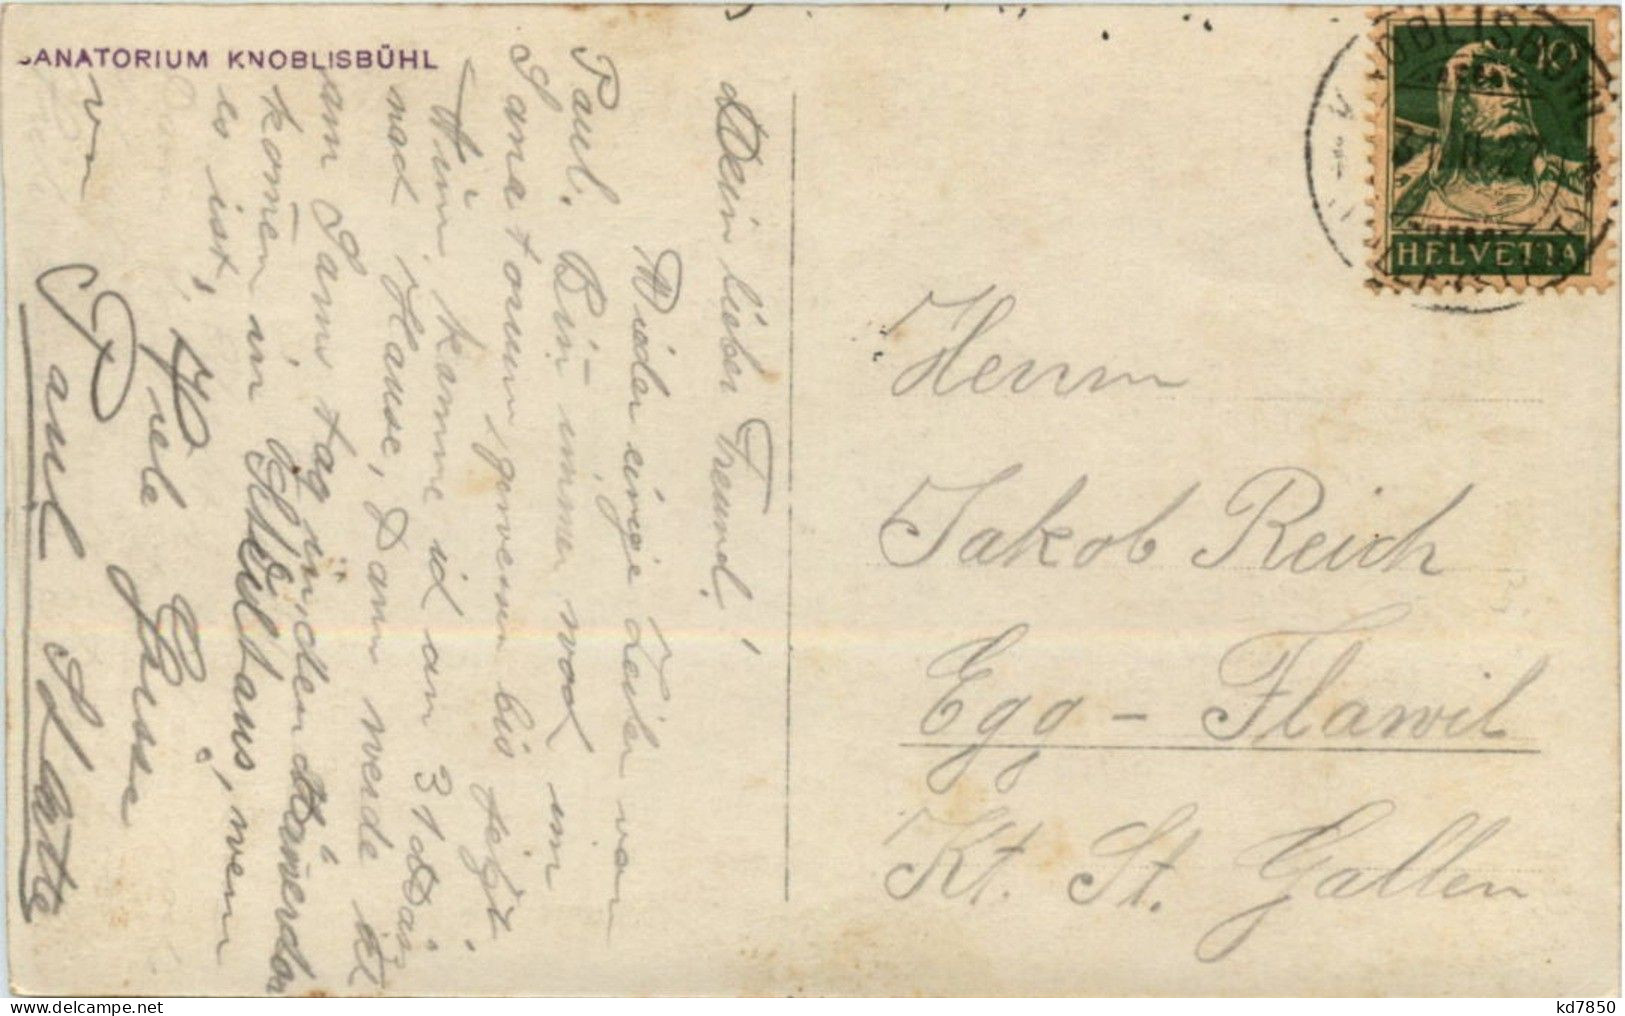 SANATORIUM KNOBLISBÜHL
Mein lieber Freund!
Wieder einige Zeilen von
Paul. Bin immer noch im
Sanatorium gewesen bis jetzt
Nun komme ich am 31 März
nach Hause, Dann werde ich
am Samstag in den
komen in wenn
es ist,
Viele Grüsse
von
Paul
HELVETIA
10
Herrn
Jakob Reich
Egg - Flawil
Kt. St. Gallen
kd7850